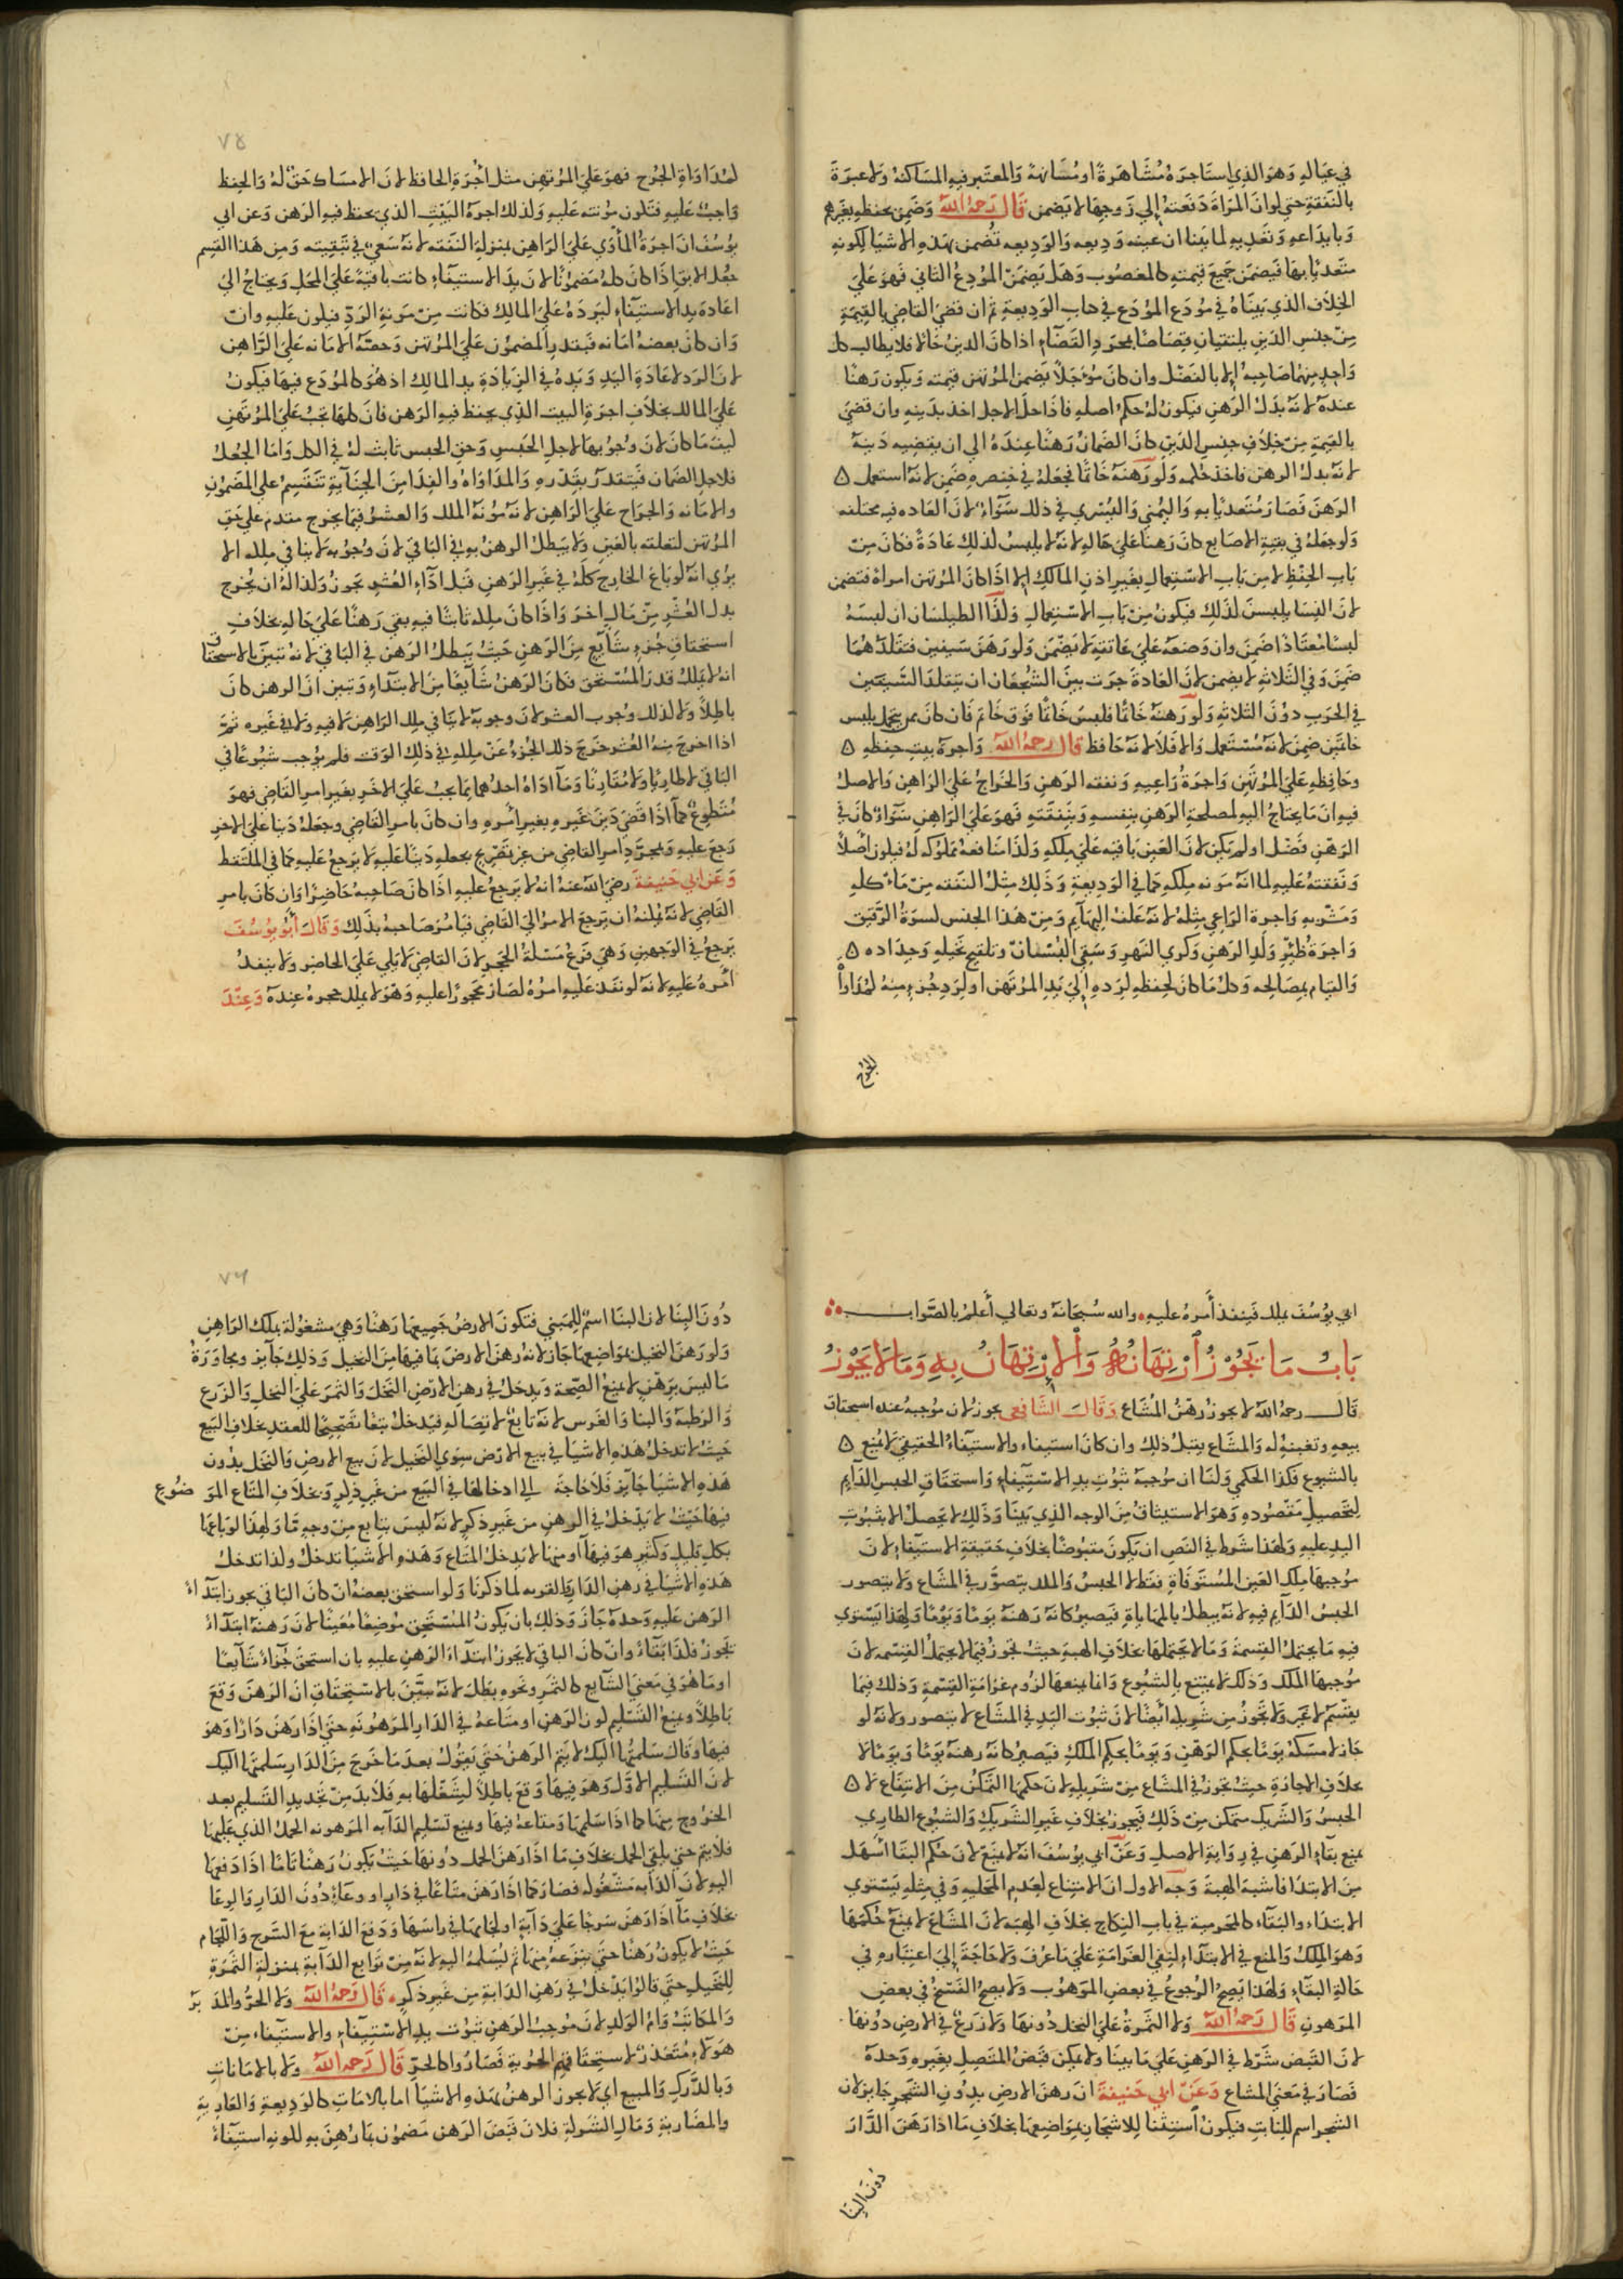 في عياله وهو الذي استاجره مشاهرة او مسانهة والمعتبر فيه المساكنة ولا عبرة
بالنفقة حتي لو ان المراة دفعته إلي زوجها لا يضمن قال رحمه الله وضمن بحفظه بغيرهم
وبايداعه وتعديه لما بينا ان عينه وديعه والوديعه تضمن بهذه الاشيا لكونه
متعديا بها فيضمن جميع قيمته كالمغصوب وهل يضمن المودع الثاني فهو علي
الخلاف الذي بيناه في مودع المودع في كتاب الوديعة ثم ان قضي القاضي بالقيمة
من جنس الدين يلتقيان قصاصا بمجرد القضاء اذا كان الدين حالا فلا يطالب كل
واحد منهما صاحبه إلا بالفضل وان كان مؤجلا يضمن المرتهن قيمته ويكون رهنا
عنده لانه بدل الرهن فيكون له حكم اصله فاذا حل الاجل اخذ بدينه وان قضي
بالقيمة من خلاف جنس الدين كان الضمان رهنا عنده الي ان يقضيه دينه
لانه بدل الرهن فاخذ حكمه ولو رهنه خاتما فجعله في خنصره ضمن لانه استعمل ٥
الرهن فصار متعديا به واليمني واليسري في ذلك سواء لان العاده فيه مختلفه
ولو جعله في بقية الاصابع كان رهنا علي حاله لانه لا يلبس لذلك عادة فكان من
باب الحفظ لا من باب الاستعمال بغير اذن المالك إلا اذا كان المرتهن امراة فتضمن
لان النسا يلبسن لذلك فيكون من باب الاستعمال وكذا الطيلسان ان لبسه
لبسا معتادا ضمن وان وضعه علي عاتقه لا يضمن ولو رهن سيفين فتقلدهما
ضمن وفي الثلاثه لا يضمن لان العادة جرت بين الشجعان ان تتقلد السيفين
في الحرب دون الثلاثه ولو رهنه خاتما فلبس خاتما فوق خاتم فان كان ممن يتجمل بلبس
خاتمين ضمن لانه مستعمل والا فلا لانه حافظ قال رحمه الله واجرة بيت حفظه ٥
وحافظه علي المرتهن واجرة راعيه ونفقه الرهن والخراج علي الراهن والاصل
فيه ان ما يحتاج اليه لمصلحة الرهن بنفسه وبنفقته فهو علي الراهن سواء كان في
الرهن فضل او لم يكن لان العين باقيه علي ملكه وكذا منافعه مملوكه له فيكون أصلا
ونفقته عليه لما انه مونه ملكه كما في الوديعة وذلك مثل النفقه من ماكله
ومشربه واجرة الراعي مثله لانه علف البهايم ومن هذا الجنس كسوة الرقيق
واجرة ظئر ولد الرهن وكري النهر وسقي البستان وتلقيح نخيله وجداده ٥
والقيام بمصالحه وكل ما كان لحفظه لرده إلي يد المرتهن او لرد جزء منه لمداواة
الجرح
٧٥
لمداواة الجرح فهو علي المرتهن مثل أجرة الحافظ لان الامساك حق له والحفظ
واجب عليه فتكون مونته عليه وكذلك اجرة البيت الذي يحفظ فيه الرهن وعن ابي
يوسف ان اجرة المأوي علي الراهن بمنزلة النفقه لانه سعي في تبقيته ومن هذا القسم
جعل الابق اذا كان كله مضمونا لان يد الاستيفاء كانت باقية علي المحل ويحتاج الي
اعادة يد الاستيفاء ليرده علي المالك فكانت من مونة الرد فيكون عليه وان
وان كان بعضه امانه فبقدر المضمون علي المرتهن وحصة الامانه علي الراهن
لان الرد لاعادة اليد ويده في الزيادة يد المالك اذ هو كالمودع فيها فيكون
علي المالك بخلاف اجرة البيت الذي يحفظ فيه الرهن فان كلها تجب علي المرتهن
كيف ما كان لان وجوبها لاجل الحبس وحق الحبس ثابت له في الكل واما الجعل
فلاجل الضمان فيتقدر بقدره والمداواه والفدا من الجناية تنقسم علي المضمون
والامانه والخراج علي الراهن لانه مونة الملك والعشر فيما يخرج مقدم علي حق
المرتهن لتعلقه بالعين ولا يبطل الرهن به في الباقي لان وجوبه لا ينافي ملكه الا
يري انه لو باع الخارج كله في غير الرهن قبل اداء العشر يجوز وكذا له ان يخرج
بدل العشر من مال اخر واذا كان ملكه ثابتا فيه بقي رهنا علي حاله بخلاف
استحقاق جزء شايع من الرهن حيث يبطل الرهن في الباقي لانه تبين بالاستحقاق
انه لا يملك قدر المستحق فكان الرهن شايعا من الابتداء وتبين ان الرهن كان
باطلا ولا كذلك وجوب العشر لان وجوبه لا ينافي ملك الراهن لا فيه ولا في غيره ثم
اذا اخرج منه العشر خرج ذلك الجزء عن ملكه في ذلك الوقت فلم يوجب شيوعا في
الباقي لا طاريا ولا مقارنا وما اداه احدهما مما يجب علي الاخر بغير امر القاضي فهو
متطوع كما اذا قضي دين غيره بغير أمره وان كان بامر القاضي وجعله دينا علي الاخر
رجع عليه وبمجرد امر القاضي من غير تصريح بجعله دينا عليه لا يرجع عليه كما في الملتقط
وعن ابي حنيفة رضي الله عنه انه لا يرجع عليه اذا كان صاحبه حاضرا وان كان بامر
القاضي لانه يمكنه ان يرجع الامر الي القاضي فيامر صاحبه بذلك وقال أبو يوسف
يرجع في الوجهين وهي فرع مسئلة الحجر لان القاضي لا يلي علي الحاضر ولا ينفذ
أمره عليه لانه لو نفذ عليه امره لصار محجورا عليه وهو لا يملك حجره عنده وعند
ابي يوسف يملك فينفذ أمره عليه والله سبحانه وتعالي أعلم بالصواب
باب ما يجوز ارتهانه والارتهان به وما لا يجوز
قال رحمه الله لا يجوز رهن المشاع وقال الشافعي يجوز لان موجبه عنده استحقاق
بيعه وتعينه له والمشاع يقبل ذلك وان كان استيفاء والاستيفاء الحقيقي لا يمنع ٥
بالشيوع فكذا الحكمي ولنا ان موجبه ثبوت يد الاستيفاء واستحقاق الحبس الدايم
لتحصيل مقصوده وهو الاستيثاق من الوجه الذي بينا وذلك لا يحصل الا بثبوت
اليد عليه ولهذا شرط في النص ان يكون مقبوضا بخلاف حقيقة الاستيفاء لان
موجبها ملك العين المستوفاة فقط لا الحبس والملك يتصور في المشاع ولا يتصور
الحبس الدايم فيه لانه يبطل بالمهاياة فيصير كانه رهنه يوما ويوما ولهذا يستوي
فيه ما يحتمل القسمة وما لا يحتملها بخلاف الهبة حيث تجوز فيما لا يحتمل القسمه لان
موجبها الملك وذلك لا يمتنع بالشيوع وانما يمنعها لزوم غرامة القسمة وذلك فيما
يقسم لا غير ولا يجوز من شريكه أيضا لان ثبوت اليد في المشاع لا يتصور ولانه لو
جاز لامسكه يوما بحكم الرهن ويوما بحكم الملك فيصير كانه رهنه يوما ويوما لا
بخلاف الاجارة حيث تجوز في المشاع من شريكه لان حكمها التمكن من الانتفاع لا ٥
الحبس والشريك متمكن من ذلك فيجوز بخلاف غير الشريك والشيوع الطاري
يمنع بقاء الرهن في رواية الاصل وعن أبي يوسف انه لا يمنع لان حكم البقا أسهل
من الابتدا فاشبه الهبة وجه الاول ان الامتناع لعدم المحليه وفي مثله يستوي
الابتداء والبقاء كالمحرمية في باب النكاح بخلاف الهبه لان المشاع لا يمنع حكمها
وهو الملك والمنع في الابتداء لنفي الغرامة علي ما عرف ولا حاجة إلي اعتباره في
حالة البقاء ولهذا يصح الرجوع في بعض الموهوب ولا يصح الفسخ في بعض
المرهون قال رحمه الله ولا الثمرة علي النخل دونها ولا زرع في الارض دونها
لان القبض شرط في الرهن علي ما بينا ولا يمكن قبض المتصل بغيره وحده
فصار في معني المشاع وعن ابي حنيفة ان رهن الارض بدون الشجر جايز لان
الشجر اسم للنابت فيكون أستثنا للاشجار بمواضعها بخلاف ما اذا رهن الدار
دون البنا
٧٦
دون البنا لان البنا اسم للمبني فتكون الارض جميعها رهنا وهي مشغولة بملك الراهن
ولو رهن النخيل بمواضعها جاز لانه رهن الارض بما فيها من النخيل وذلك جايز ومجاورة
ما ليس برهن لا يمنع الصحة ويدخل في رهن الارض النخل والثمر علي النخل والزرع
والرطبة والبنا والغرس لانه تابع لاتصاله فيدخل تبعا تصحيحا للعقد بخلاف البيع
حيث لا تدخل هذه الاشيا في بيع الارض سوي النخيل لان بيع الارض والنخل بدون
هذه الاشيا جايز فلا حاجة إلي ادخالها في البيع من غير ذكر وبخلاف المتاع الموضوع
فيها حيث لا يدخل في الرهن من غير ذكر لانه ليس بتابع من وجه ما ولهذا لو باعها
بكل قليل وكثير هو فيها أو منها لا يدخل المتاع وهذه الاشيا تدخل وكذا تدخل
هذه الاشيا في رهن الدار والقريه لما ذكرنا ولو استحق بعضه ان كان الباقي يجوز ابتداء
الرهن عليه وحده جاز وذلك بان يكون المستحق موضعا معينا لان رهنه ابتداء
يجوز فكذا بقاء وان كان الباقي لا يجوز ابتداء الرهن عليه بان استحق جزاء شايعا
او ما هو في معني الشايع كالثمر ونحوه بطل لانه تبين بالاستحقاق ان الرهن وقع
باطلا ويمنع التسليم كون الراهن او متاعه في الدار المرهونه حتي اذا رهن دارا وهو
فيها وقال سلمتها اليك لا يتم الرهن حتي يقول بعد ما خرج من الدار سلمتها اليك
لان التسليم الاول وهو فيها وقع باطلا لشغلها به فلا بد من تجديد التسليم بعد
الخروج منها كما اذا سلمها ومتاعه فيها ويمنع تسليم الدابه المرهونه الحمل الذي عليها
فلا يتم حتي يلقي الحمل بخلاف ما اذا رهن الحمل دونها حيث يكون رهنا تاما اذا دفعها
اليه لان الدابه مشغوله فصار كما اذا رهن متاعا في دار او وعاء دون الدار والوعا
بخلاف ما اذا رهن سرجا علي دابة او لجاما في راسها ودفع الدابة مع السرج واللجام
حيث لا يكون رهنا حتي ينزعه منها ثم يسلمه اليه لانه من توابع الدابة بمنزلة الثمرة
للنخيل حتي قالوا يدخل في رهن الدابة من غير ذكره قال رحمه الله ولا الحر والمدبر
والمكاتب وام الولد لان موجب الرهن ثبوت يد الاستيفاء والاستيفاء من
هولاء متعذر لاستحقاقهم الحرية فصاروا كالحر قال رحمه الله ولا بالامانات
وبالدرك والمبيع اي لا يجوز الرهن بهذه الاشيا اما بالامانات كالوديعة والعارية
والمضاربة ومال الشركة فلان قبض الرهن مضمون بما رهن به لكونه استيفاء